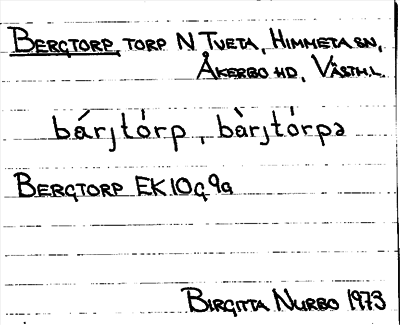 BERGTORP, TORP N TVETA, HIMMETA SN,
ÅKERBO HD, VÄSTM.L.
bárjtórp, bàrjtórpə
BERGTORP EK 10G 9a
BIRGITTA NURBO 1973